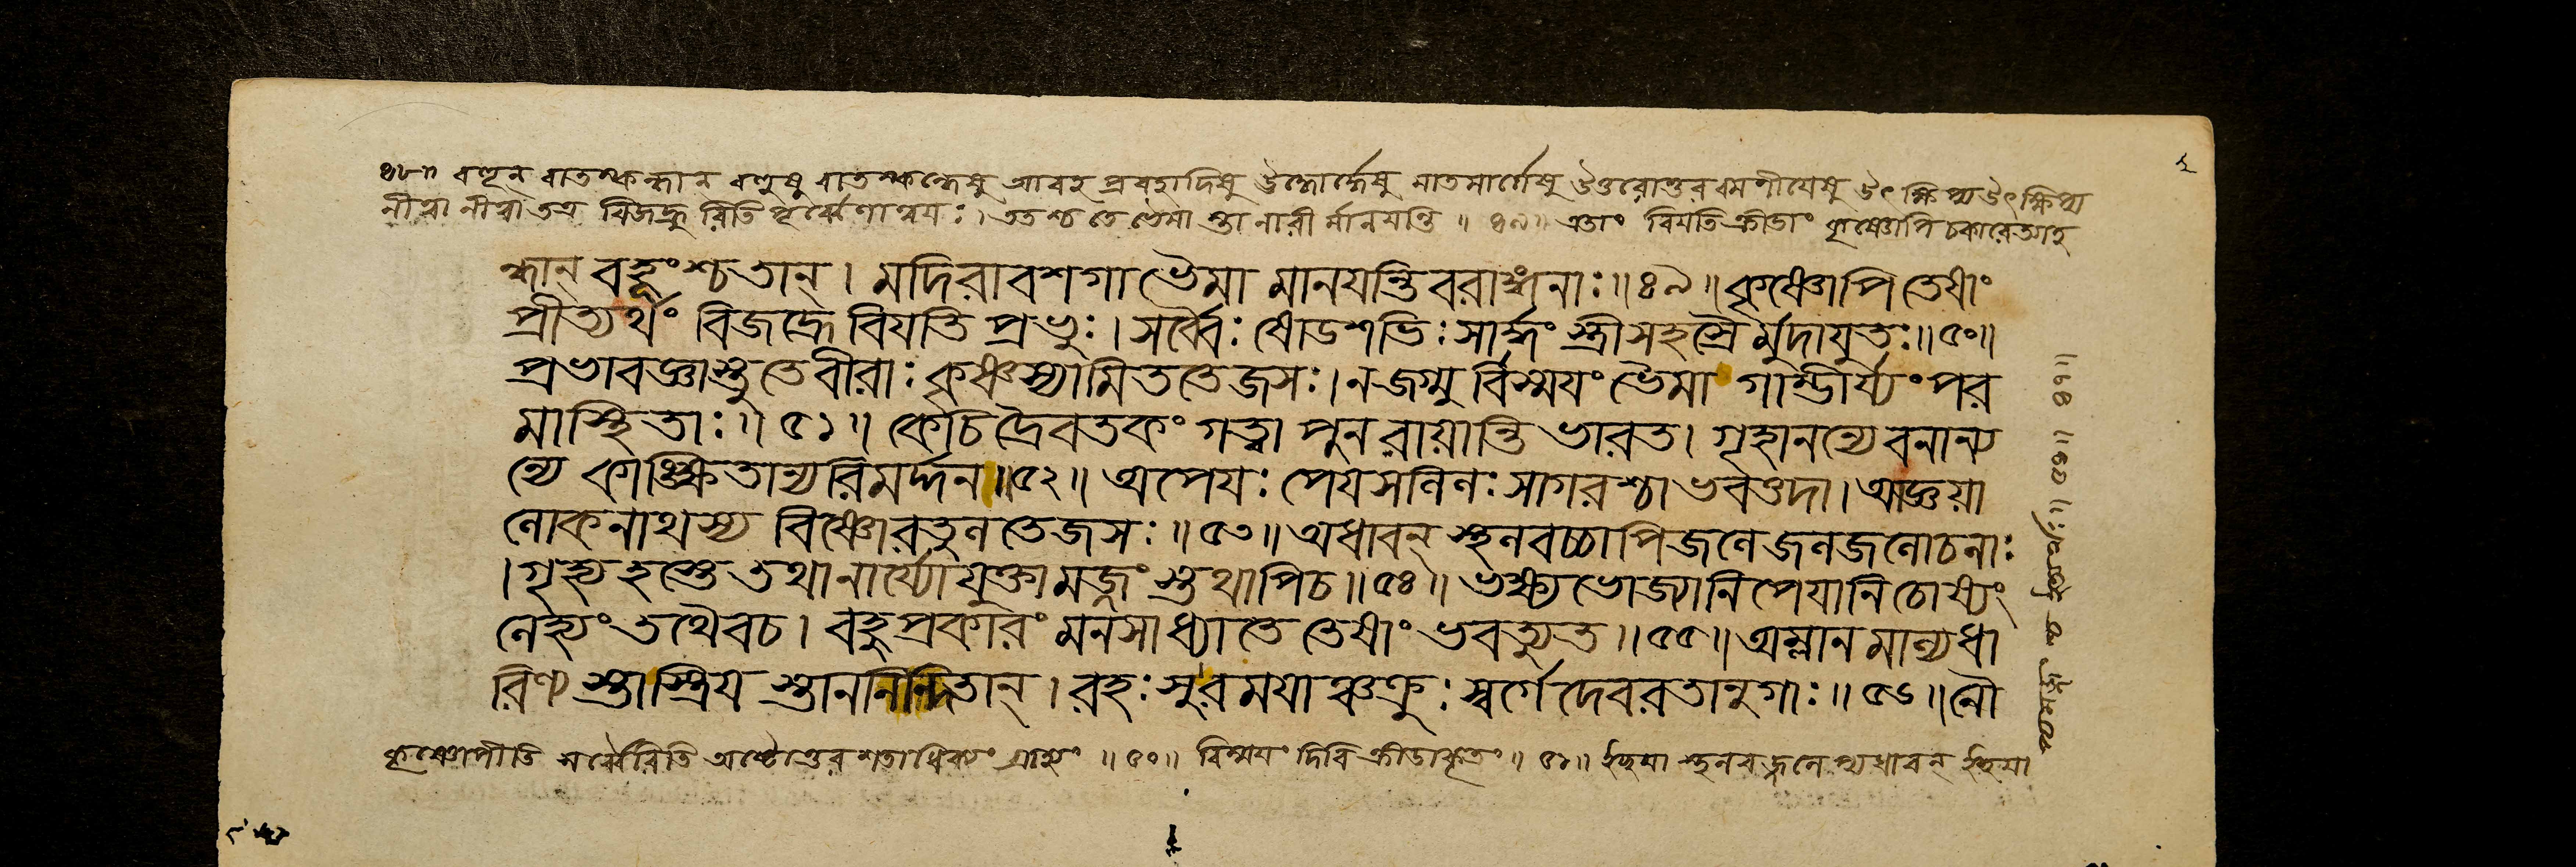 ৪৮॥ বহূন বাতস্কন্ধান বহুষু বাতস্কন্ধেষু আবহ প্রবহাদিষু ঊর্দ্ধোর্দ্ধেষু বাতমার্গেষু উত্তরোত্তর রমণীয়েষু উৎক্ষিপ্য উৎক্ষিপ্য
নীত্বা নীত্বা তত্র বিজহ্রু রিতি পূর্ব্বেণান্বয়ঃ। ততশ্চ তে ভৈমা স্তা নারী র্মানয়ন্তি ॥ ৪৯॥ এতাং বিয়তি ক্রীডাং কৃষ্ণোপি চকারেত্যাহ
ন্ধান্ বহূংশ্চতান্। মদিরাবশগা ভৈমা মানযন্তি বরাঙ্গনাঃ॥৪৯॥ কৃষ্ণোপি তেষাং
প্রীত্যর্থং বিজহ্রে বিযতি প্রভুঃ। সর্ব্বৈঃ ষোডশভিঃ সার্দ্ধং স্ত্রীসহস্রৈ র্মুদাযুতঃ॥৫০॥
প্রভাবজ্ঞাস্তু তে বীরাঃ কৃষ্ণস্যামিততেজসঃ। নজগ্মু র্বিস্ময়ং ভৈমা গাম্ভীর্য্যং পর
মাস্থিতাঃ॥ ৫১॥ কেচিদ্রৈবতকং গত্বা পুন রায়ান্তি ভারত। গৃহানন্যে বনান্য
ন্যে কাঙ্ক্ষিতান্যরিমর্দ্দন॥৫২॥ অপেযঃ পেযসলিলঃ সাগরশ্চাভবত্তদা। আজ্ঞয়া
লোকনাথস্য বিষ্ণোরতুলতেজসঃ॥৫৩॥ অধাবন্ স্থলবচ্চাপি জলে জলজলোচনাঃ
।গৃহ্য হস্তে তথা নার্য্যো যুক্তা মজ্জং স্তথাপিচ॥৫৪॥ ভক্ষ্যভোজ্যানি পেযানি চোষ্যং
লেহ্যং তথৈবচ। বহুপ্রকারং মনসাধ্যাতে তেষাং ভবত্যুত॥৫৫॥ অম্লান মাল্যধা
রিণ্য স্তাস্ত্রিয স্তাননিন্দিতান্। রহঃসু রময়াঞ্চক্রুঃ স্বর্গে দেবরতানুগাঃ॥ ৫৬॥ নৌ
কৃষ্ণোপীতি সর্ব্বৈরিতি অষ্টোত্তর শতাধিক্যং গ্রাহ্যং ॥ ৫০॥ বিস্ময়ং দিবি ক্রীডাকৃতং॥ ৫১॥ স্থলবজ্জলে